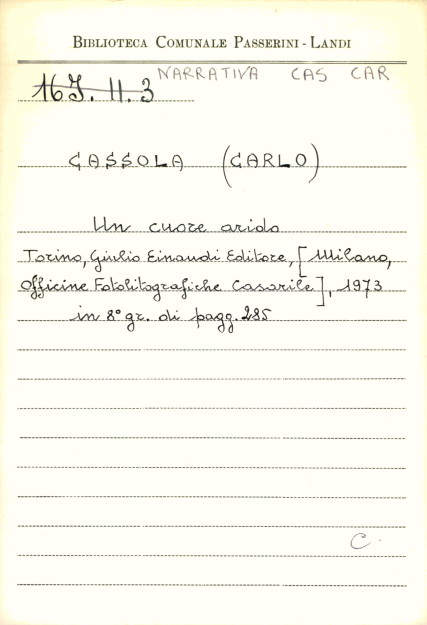 BIBLIOTECA COMUNALE PASSERINI-LANDI
NARRATIVA CAS CAR
16 J. 11. 3
CASSOLA (CARLO)
Un cuore arido
Torino, Giulio Einaudi Editore, [Milano,
Officine Fotolitografiche Casarile], 1973
in 8° gr. di pagg. 285
C.